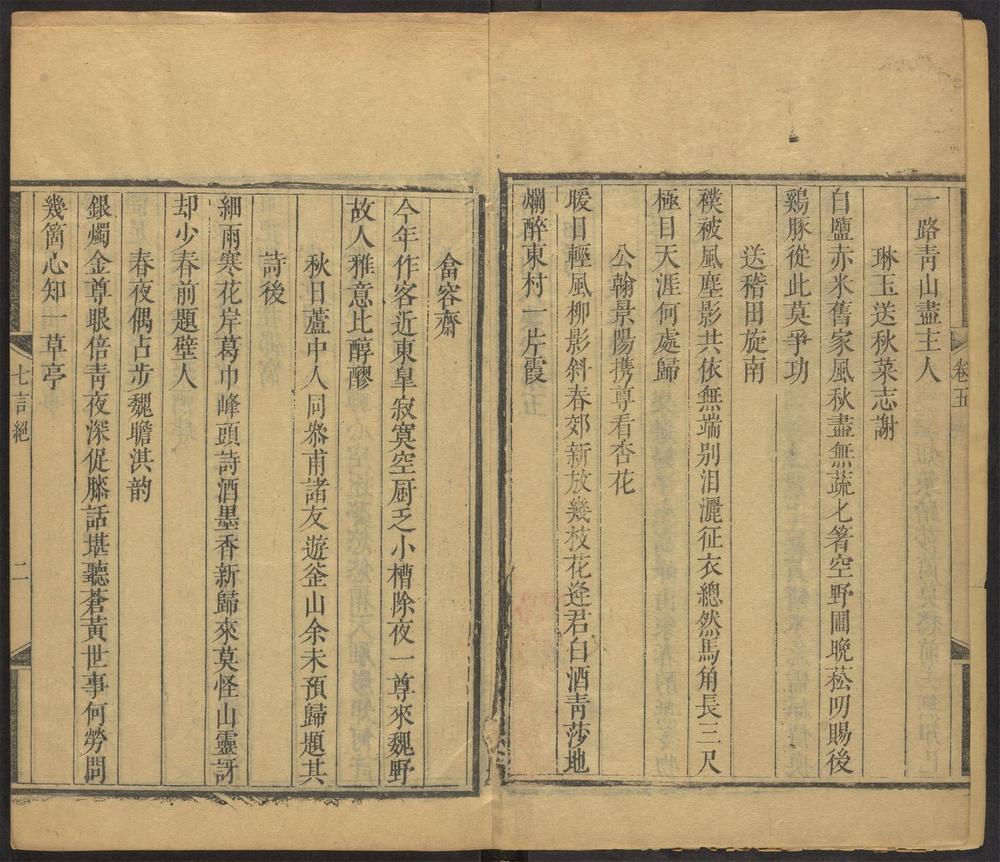 卷五
一路青山盡主人
琳玉送秋菜志謝
白鹽赤米舊家風秋盡無蔬匕箸空野圃晚菘叨賜後
鷄豚從此莫爭功
送稽田旋南
襆被風塵影共依無端別泪灑征衣總然馬角長三尺
極目天涯何處歸
公翰景陽携尊看杏花
暖日輕風柳影斜春郊新放幾枝花逢君白酒靑莎地
爛醉東村一片霞
畣容齋
今年作客近東皐寂寞空厨乏小槽除夜一尊來魏野
故人雅意比醇醪
秋日蘆中人同叅甫諸友遊釜山余未預歸題其
詩後
細雨寒花岸葛巾峰頭詩酒墨香新歸來莫怪山靈訝
却少春前題壁人
春夜偶占步魏瞻淇韵
銀燭金尊眼倍靑夜深促膝話堪聽蒼黃世事何勞問
幾箇心知一草亭
七言絕 二